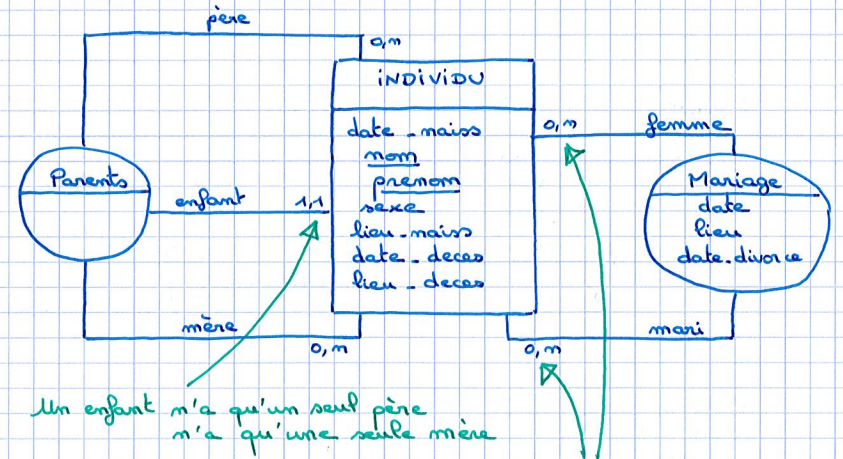 père
0,n
INDIVIDU
date_naiss
nom
prenom
sexe
lieu_naiss
date_deces
lieu_deces
0,n
femme
Parents
enfant
1,1
Mariage
date
lieu
date.divorce
mère
0,n
mari
0,n
Un enfant n'a qu'un seul père
n'a qu'une seule mère